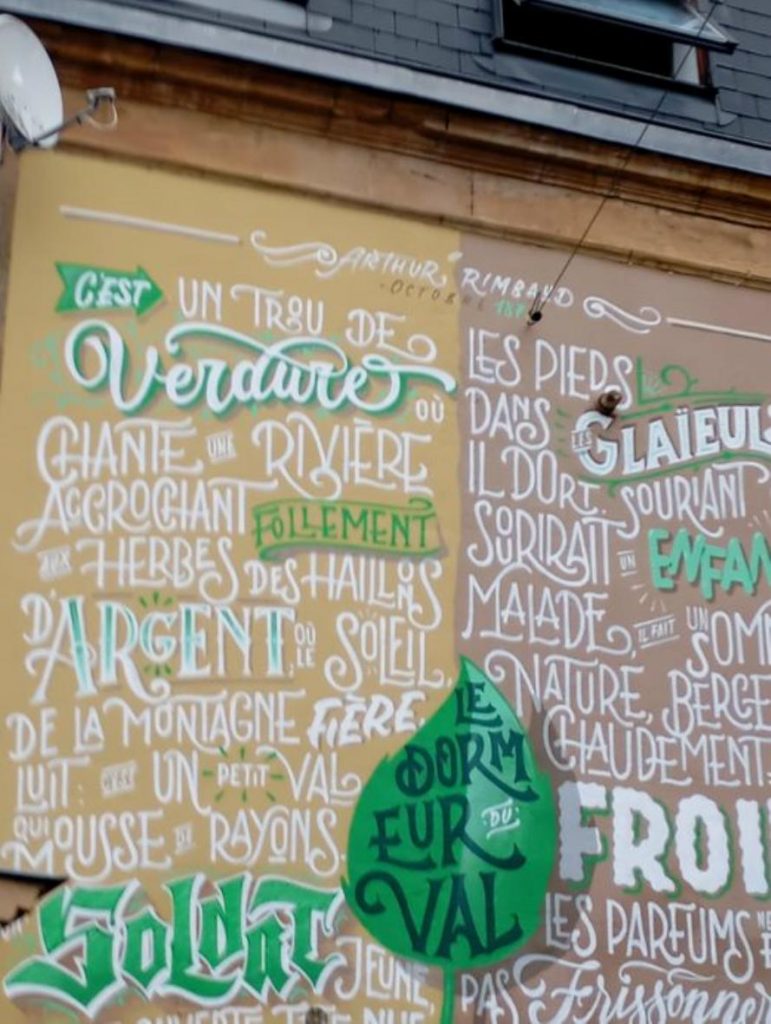 ARTHUR RIMBAUD
OCTOBRE 187
C'EST UN TROU DE
Verdure OÙ
CHANTE UNE RIVIÈRE
ACCROCHANT FOLLEMENT
AUX HERBES DES HAILLONS
D'ARGENT, OÙ LE SOLEIL,
DE LA MONTAGNE FIÈRE,
LUIT: C'EST UN PETIT VAL
QUI MOUSSE DE RAYONS.
SOLDAT JEUNE,
LE
DORM
EUR DU
VAL
LES PIEDS
DANS LES GLAÏEULS
IL DORT. SOURIANT
SOURIRAIT UN ENFAN
MALADE, IL FAIT UN SOMM
NATURE, BERCE
CHAUDEMENT:
FROI
LES PARFUMS NE
PAS Frissonner